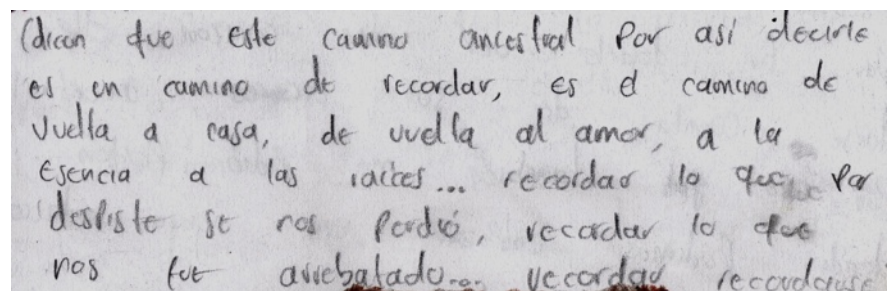 (dicen que este camino ancestral Por asi decirle
es un camino de recordar, es el camino de
vuelta a casa, de vuelta al amor, a la
Esencia a las raices... recordar lo que Por
despiste se nos Perdió, recordar lo que
nos fue arrebatado... recordar recordarse